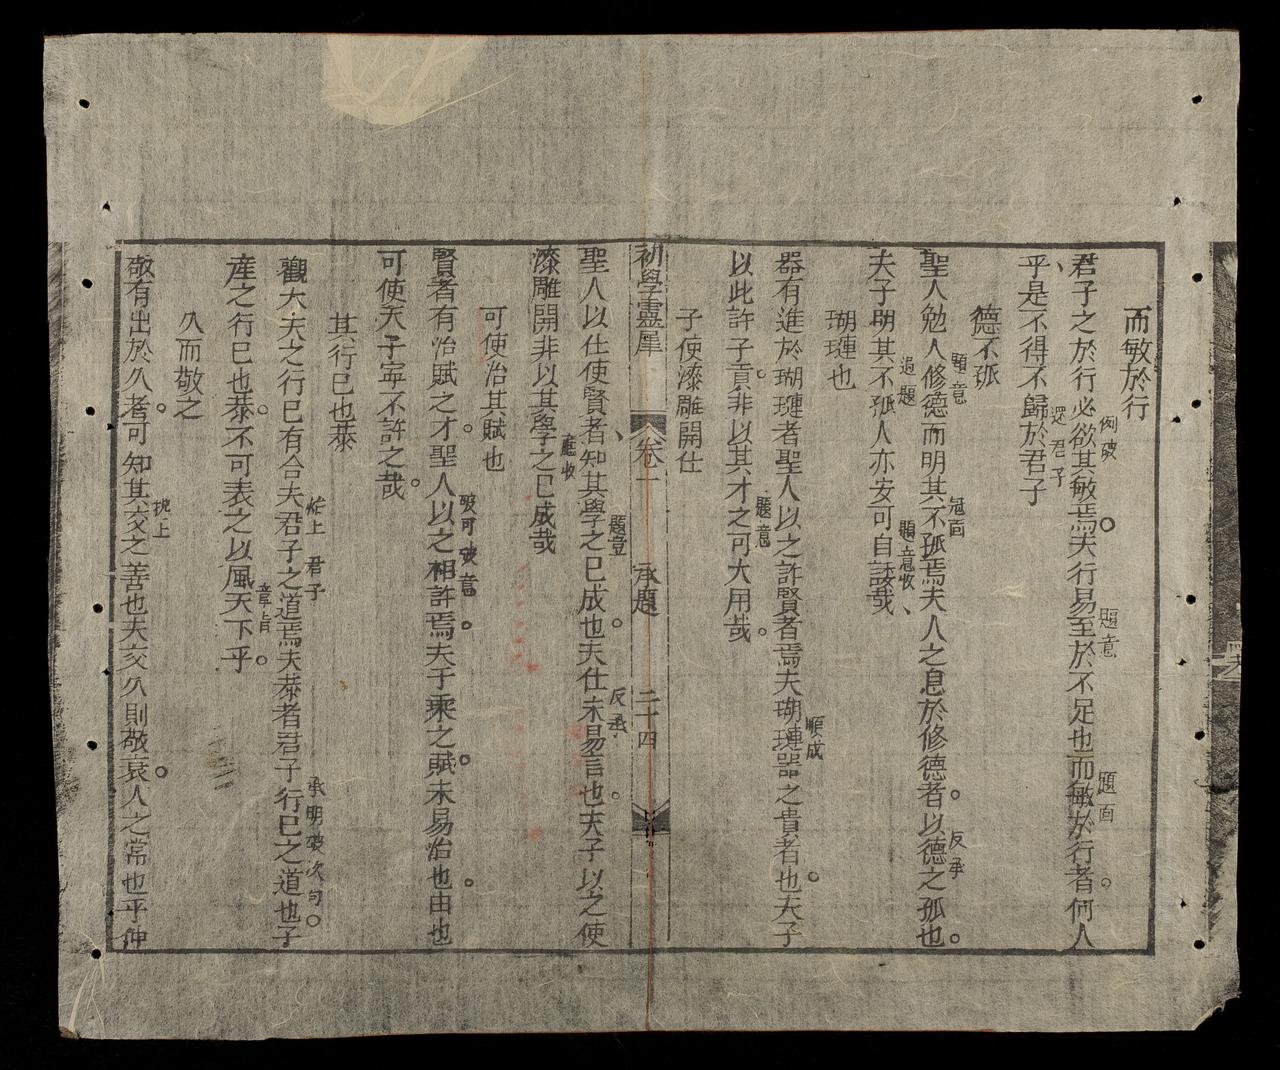 而敏於行
君子之於行必欲其敏焉夫行易至於不足也而敏於行者何人
倒破
題意
題面
乎是不得不歸於君子
還君子
德不孤
聖人勉人修德而明其不孤焉夫人之息於修德者以德之孤也
題意
冠面
反承
夫子明其不孤人亦安可自諉哉
過題
題意收
瑚璉也
器有進於瑚璉者聖人以之許賢者焉夫瑚璉器之貴者也夫子
順成
以此許子貢非以其才之可大用哉
題意
子使漆雕開仕
初學靈犀
卷一
承題
二十四
聖人以仕使賢者知其學之已成也夫仕未易言也夫子以之使
題意
反承
漆雕開非以其學之已成哉
應收
可使治其賦也
賢者有治賦之才聖人以之相許焉夫千乘之賦未易治也由也
破可破意
可使夫子寧不許之哉
其行已也恭
觀大夫之行已有合夫君子之道焉夫恭者君子行已之道也子
上君子
承明破次句
產之行已也恭不可表之以風天下乎
章旨
久而敬之
敬有出於久者可知其交之善也夫交久則敬衰人之常也平仲
挽上